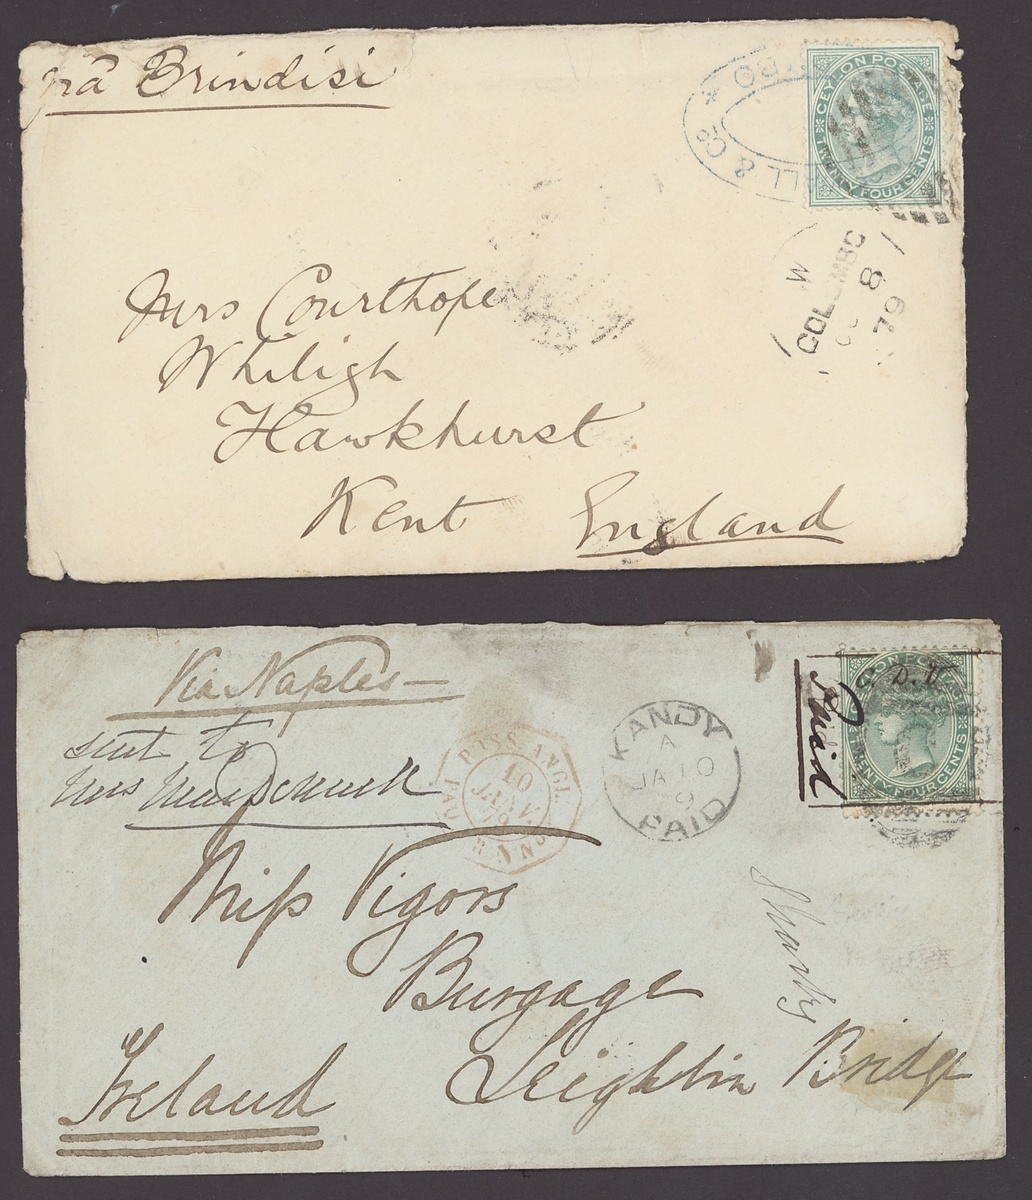 viâ Brindisi
CEYLON POSTAGE
TWENTY FOUR CENTS
& Co
W
COLOMBO
8
79
Mrs Courthope
Whiligh
Hawkhurst
Kent England
Via Naples
sent to
Mrs
POSS. ANGL.
10
JANV.
KANDY
A
JA 10
9
PAID
Paid
CEYLON POSTAGE
TWENTY FOUR CENTS
Miss Vigors
Burgage
Leighlin Bridge
Ireland